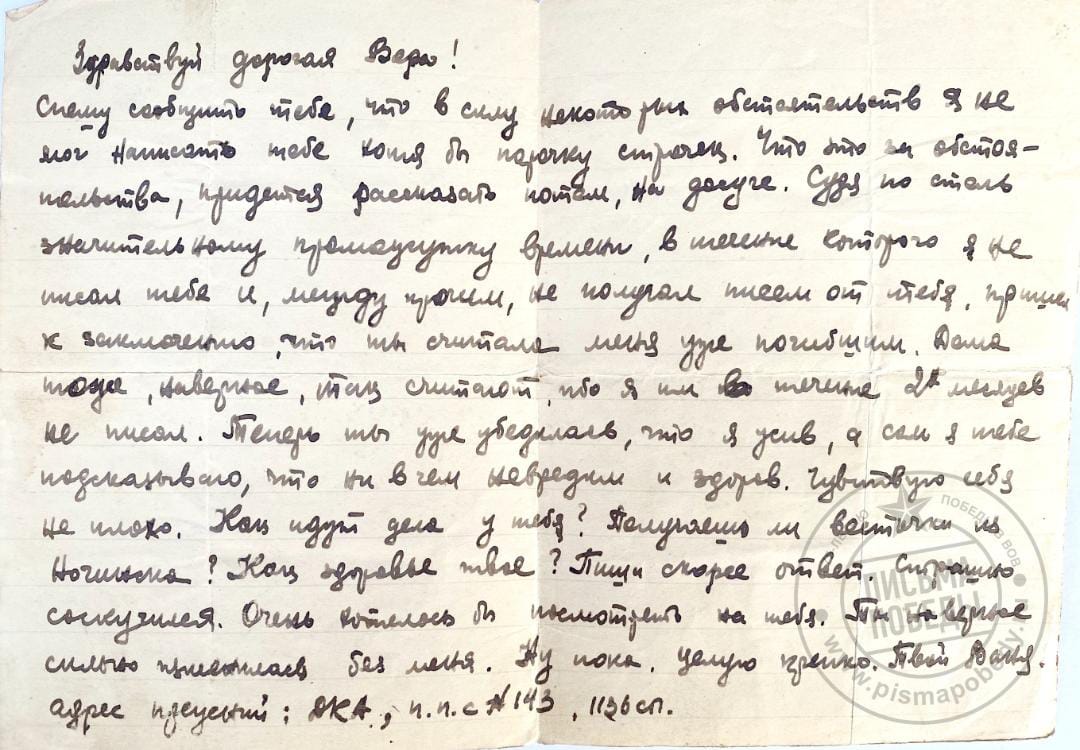 Здравствуй дорогая Вера!
Спешу сообщить тебе, что в силу некоторых обстоятельств я не
мог написать тебе хотя бы парочку строчек. Что это за обстоя-
тельства, придется рассказать потом, на досуге. Судя по столь
значительному промежутку времени, в течение которого я не
писал тебе и, между прочим, не получал писем от тебя, пришел
к заключению, что ты считала меня уже погибшим. Дома
тоже, наверное, так считают, ибо я им в течение 2х месяцев
не писал. Теперь ты уже убедилась, что я жив, а сам я тебе
подсказываю, что ни в чем невредим и здоров. Чувствую себя
не плохо. Как идут дела у тебя? Получаешь ли весточки из
Ночинска? Как здоровье твое? Пиши скорее ответ. Страшно
соскучился. Очень хотелось бы посмотреть на тебя. Ты наверное
сильно изменилась без меня. Ну пока. Целую крепко. Твой Ваня.
адрес прежний: ДКА, п.п.с № 143, 1136 сп.
ПИСЬМА
ПОБЕДЫ
www.pismapobedy.ru